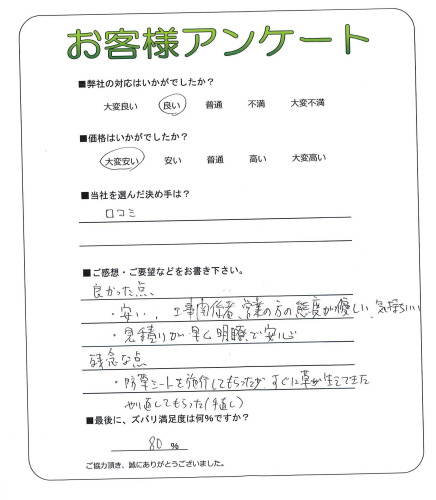 お客様アンケート
■弊社の対応はいかがでしたか？
大変良い 良い 普通 不満 大変不満
■価格はいかがでしたか？
大変安い 安い 普通 高い 大変高い
■当社を選んだ決め手は？
口コミ
■ご感想・ご要望などをお書き下さい。
良かった点、
・安い、工事関係者、営業の方の態度が優しい、気持ちいい
・見積りが早く明瞭で安心
残念な点
・防草シートを施行してもらったが、すぐに草が生えてきた
やり直してもらった(手直し)
■最後に、ズバリ満足度は何％ですか？
80 %
ご協力頂き、誠にありがとうございました。